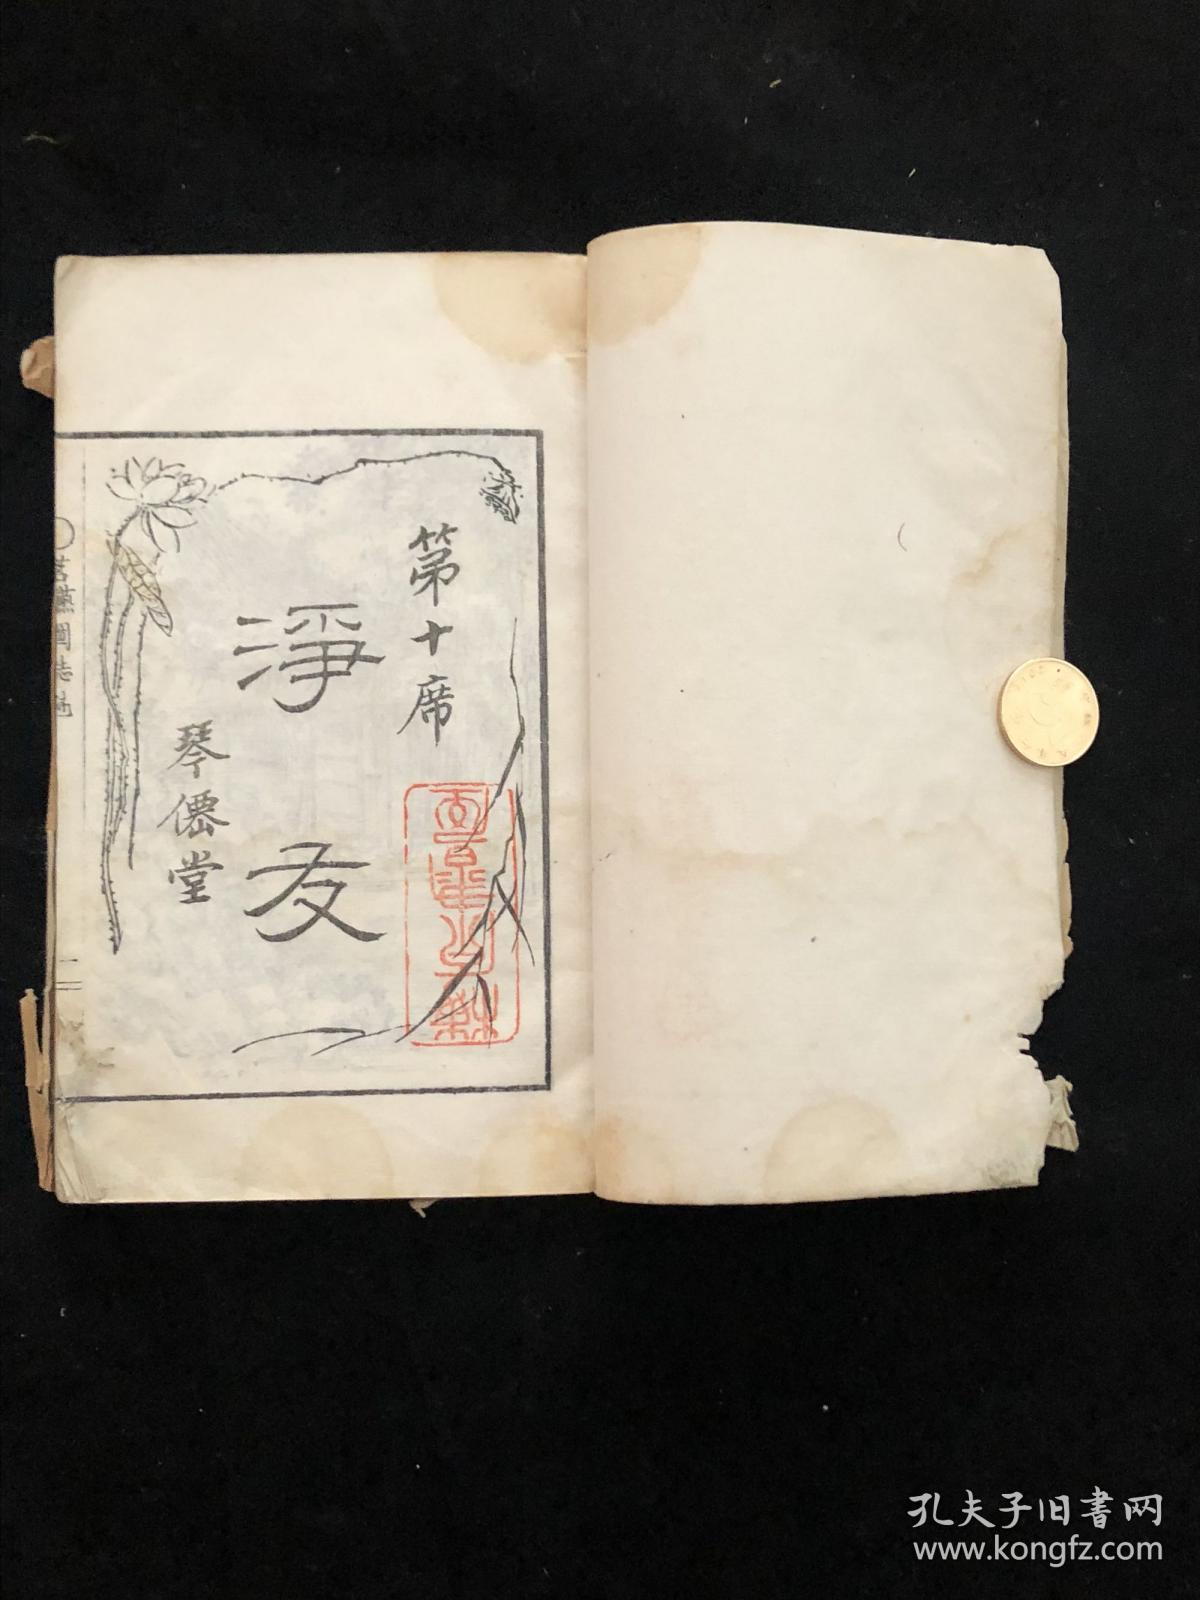 第十席
淨友
琴僊堂
茗讌圖志
二
孔夫子旧书网
www.kongfz.com